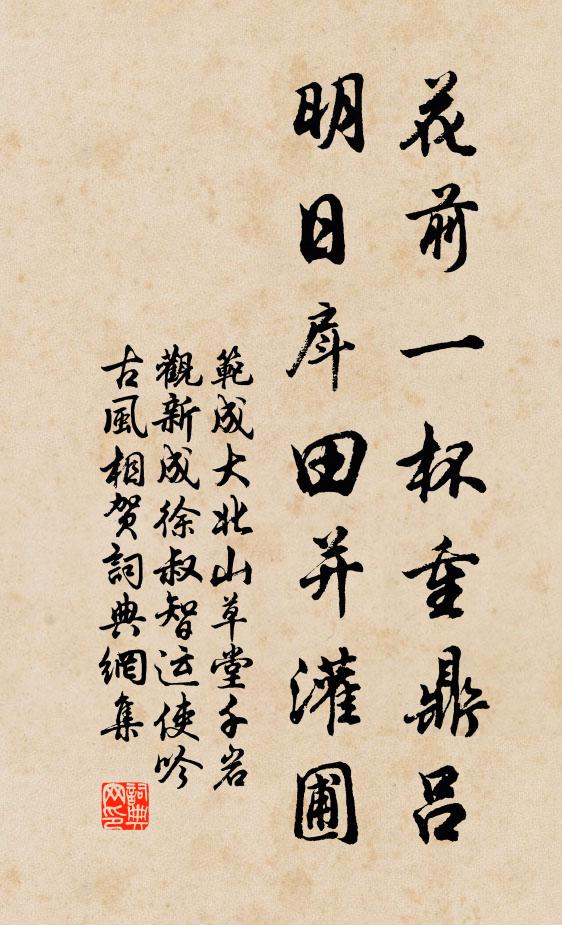 花前一杯重鼎吕
明日戽田并灌圃
範成大北山草堂千岩
觀新成徐叔智运使吟
古風相贺詞典網集
詞典
网印